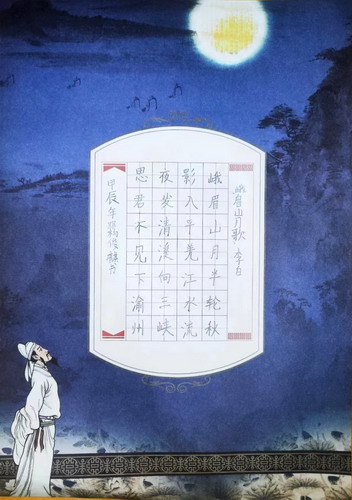 峨眉山月歌 李白
峨眉山月半轮秋
影入平羌江水流
夜发清溪向三峡
思君不见下渝州
甲辰年 俊 书